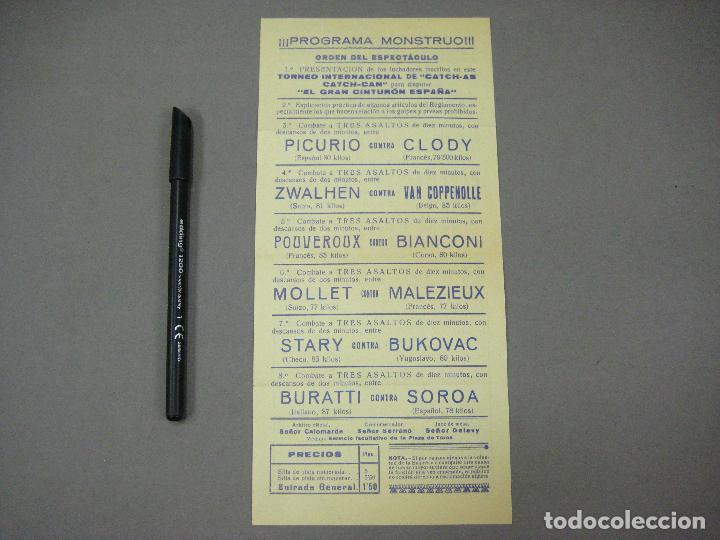 ¡¡¡PROGRAMA MONSTRUO!!!
ORDEN DEL ESPECTÁCULO
1.º PRESENTACIÓN de los luchadores inscritos en este
TORNEO INTERNACIONAL DE "CATCH-AS
CATCH-CAN" para disputar
"EL GRAN CINTURÓN ESPAÑA"
2.º Explicación práctica de algunos artículos del Reglamento, es-
pecialmente los que hacen relación a los golpes y presas prohibidos.
3.º Combate a TRES ASALTOS de diez minutos, con
descansos de dos minutos, entre
PICURIO CONTRA CLODY
(Español 80 kilos) (Francés, 79'500 kilos)
4.º Combate a TRES ASALTOS de diez minutos, con
descansos de dos minutos, entre
ZWALHEN CONTRA VAN COPPENOLLE
(Suizo, 81 kilos) (Belga, 83 kilos)
5.º Combate a TRES ASALTOS de diez minutos, con
descansos de dos minutos, entre
POUVEROUX CONTRA BIANCONI
(Francés, 83 kilos) (Corso, 80 kilos)
6.º Combate a TRES ASALTOS de diez minutos, con
descansos de dos minutos, entre
MOLLET CONTRA MALEZIEUX
(Suizo, 77 kilos) (Francés, 77 kilos)
7.º Combate a TRES ASALTOS de diez minutos, con
descansos de dos minutos, entre
STARY CONTRA BUKOVAC
(Checo, 83 kilos) (Yugoslavo, 80 kilos)
8.º Combate a TRES ASALTOS de diez minutos, con
descansos de dos minutos, entre
BURATTI CONTRA SOROA
(Italiano, 87 kilos) (Español, 78 kilos)
Árbitro oficial, Cronometrador Juez de mesa,
Señor Calomarde Señor Serrano Señor Delavy
Médicos: Servicio facultativo de la Plaza de Toros
PRECIOS Ptas.
Silla de pista numerada
Silla de pista sin numerar
Entrada General 1'50
NOTA.—Si por causas ajenas a la volun-
tad de la Empresa
edding 1200
CE
todocoleccion
todocoleccion.net